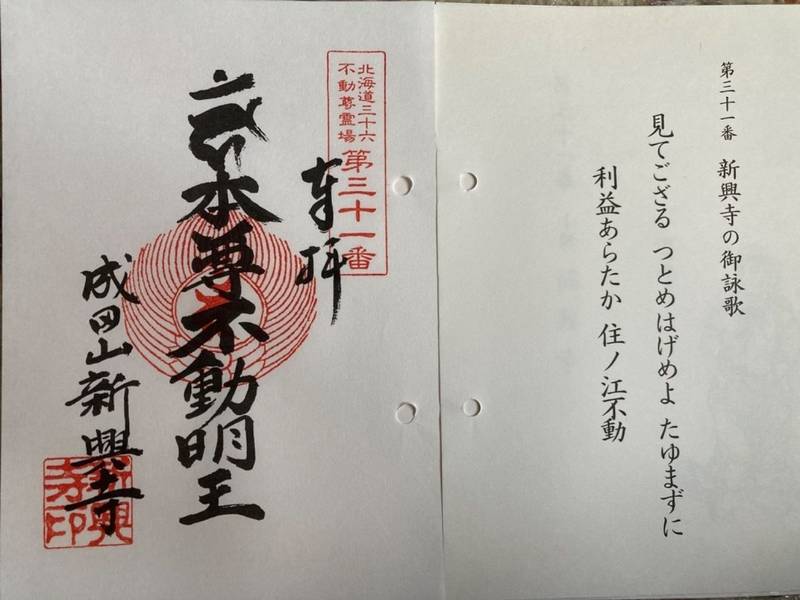 第三十一番 新興寺の御詠歌
見てござる つとめはげめよ たゆまずに
利益あらたか 住ノ江不動
北海道三十六
不動尊霊場
第三十一番
奉拝
本尊不動明王
成田山新興寺
新興
寺印